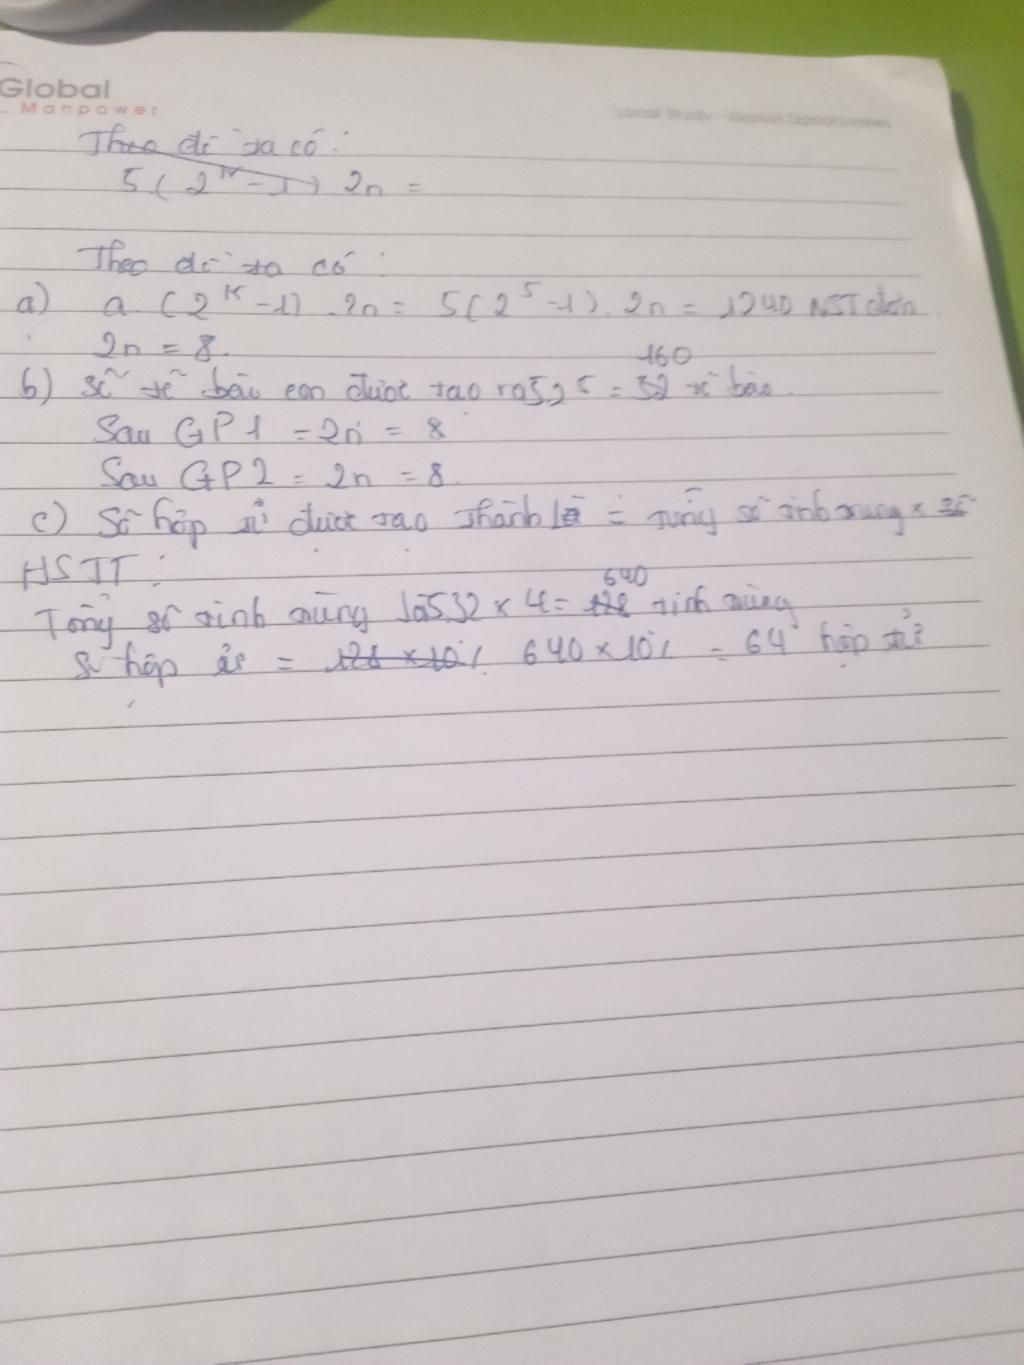 Global
Manpower
Local Study - Global Opportunities
Theo đề ta có:
5 ( 2^k - 1 ) 2n =
Theo đề ta có :
a) a ( 2^k - 1 ) . 2n = 5 ( 2^5 - 1 ) . 2n = 1240 NST đơn
2n = 8.
160
b) Số tế bào con được tạo ra 5.2^5 = 32 tế bào.
Sau GP1 = 2n = 8
Sau GP2 = 2n = 8.
c) Số hợp tử được tạo thành là = tổng số tinh trùng x
HSTT :
640
Tổng số tinh trùng là 5.32 x 4 = 128 tinh trùng
Số hợp tử = 128 x 10% 640 x 10% = 64 hợp tử